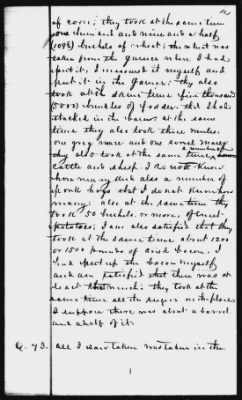 of corn; they took at the same time
one hundred and nine and a half
(109½) bushels of wheat; the wheat was
taken from the garner where I had
put it, I measured it myself and
put it in the garner; they also
took at the same time five thousand
(5000) bundles of fodder that I had
stacked in the barn at the same
time they also took three mules,
one grey mare and one sorrel mare;
they also took at the same time a number of
cattle and sheep. I do not know
how many and also a number of
pork hogs that I do not know how
many; also at the same time they
took 50 bushels, or more, of sweet
potatoes; I am also satisfied that they
took at the same time about 1200
or 1500 pounds of dried bacon. I
had put up the bacon myself
and am satisfied that there was at
least that much; they took at the
same time all the sugar on the place,
I suppose there was about a barrel
and a half of it.
Q. 73. All I saw taken was taken in the